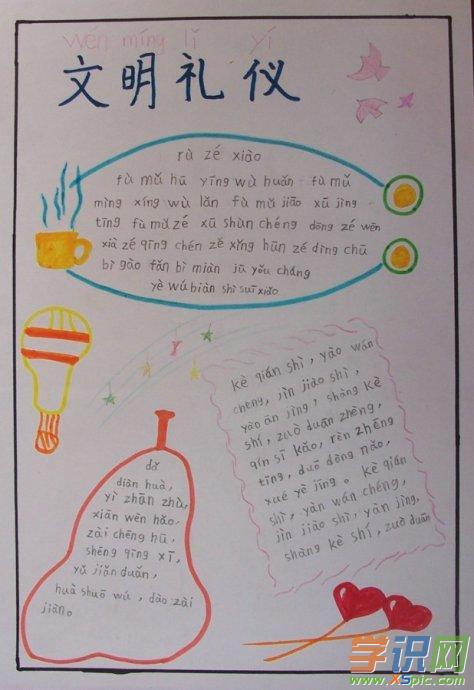 wén míng lǐ yí
文明礼仪
rù zé xiào
fù mǔ hū yīng wù huǎn fù mǔ
mìng xíng wù lǎn fù mǔ jiāo xū jìng
tīng fù mǔ zé xū shùn chéng dōng zé wēn
xià zé qīng chén zé xǐng hūn zé dìng chū
bì gào fǎn bì miàn jū yǒu cháng
yè wú biàn shì suī xiǎo
kè qián shì, yào wán
chéng, jìn jiào shì,
yào ān jìng, shàng kè
shí, zuò duān zhèng,
qín sī kǎo, rèn zhēng
tīng, duō dòng nǎo,
xué yè jīng。 kè qián
shì, yàn wán chéng,
jìn jiāo shì, yàn jìng,
shàng kè shí, zuò duān
dǎ
diàn huà,
yì zhān zhù,
xiān wèn hǎo,
zài chēng hū,
shēng qīng xī,
yǔ jiǎn duǎn,
huà shuō wú, dào zài
jiàn。
学识网
www.XSpic.com